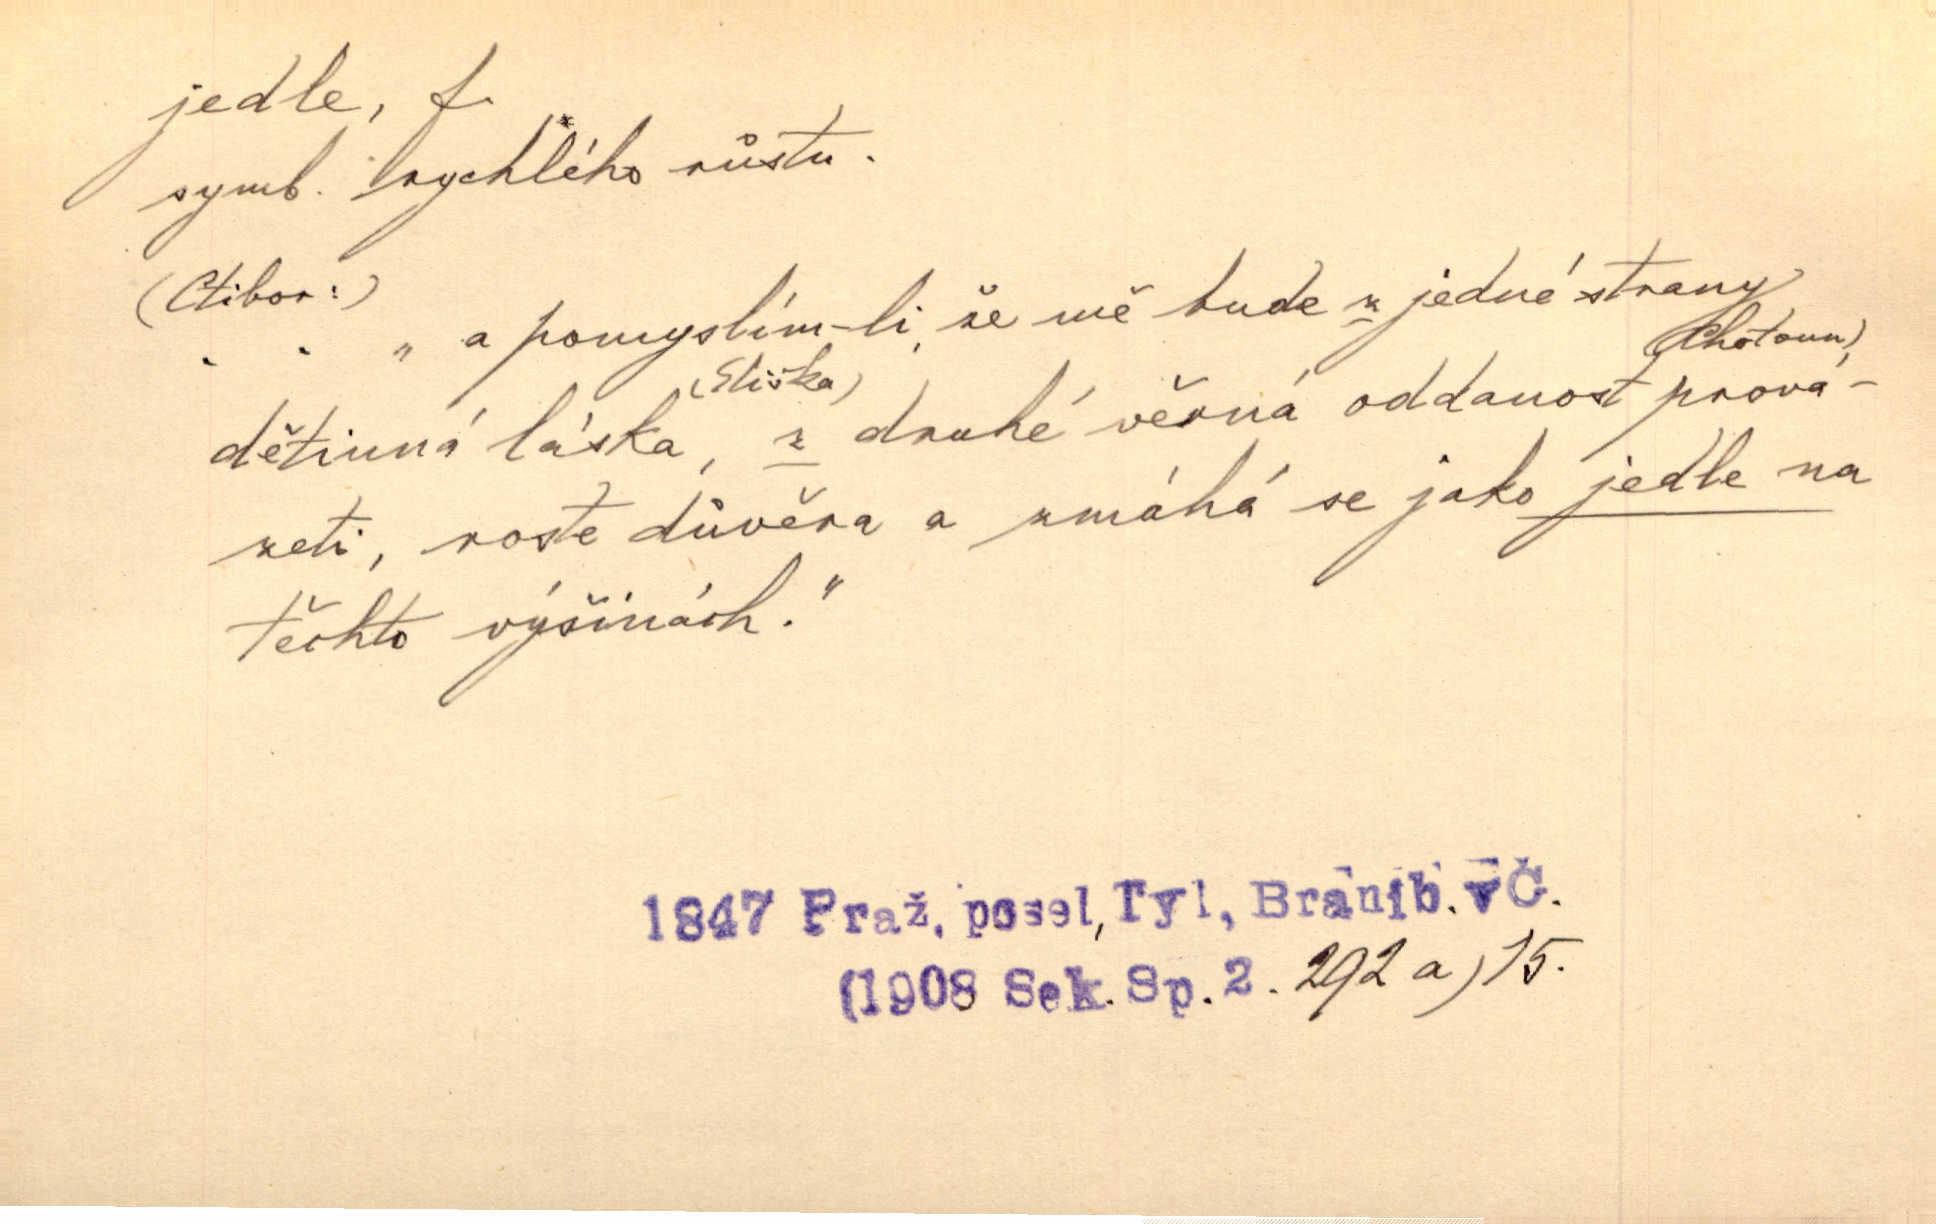 jedle, f.
symb. rychlého růstu.
(Ctibor:)
. . „a pomyslím-li, že mě bude z jedné strany
(Eliška) (Chotoun)
dětinná láska, z druhé věrná oddanost prová-
zeti, roste důvěra a zmáhá se jako jedle na
těchto výšinách."
1847 Praž. posel, Tyl, Braníb. v Č.
(1908 Sek. Sp. 2. 292 a) 15.